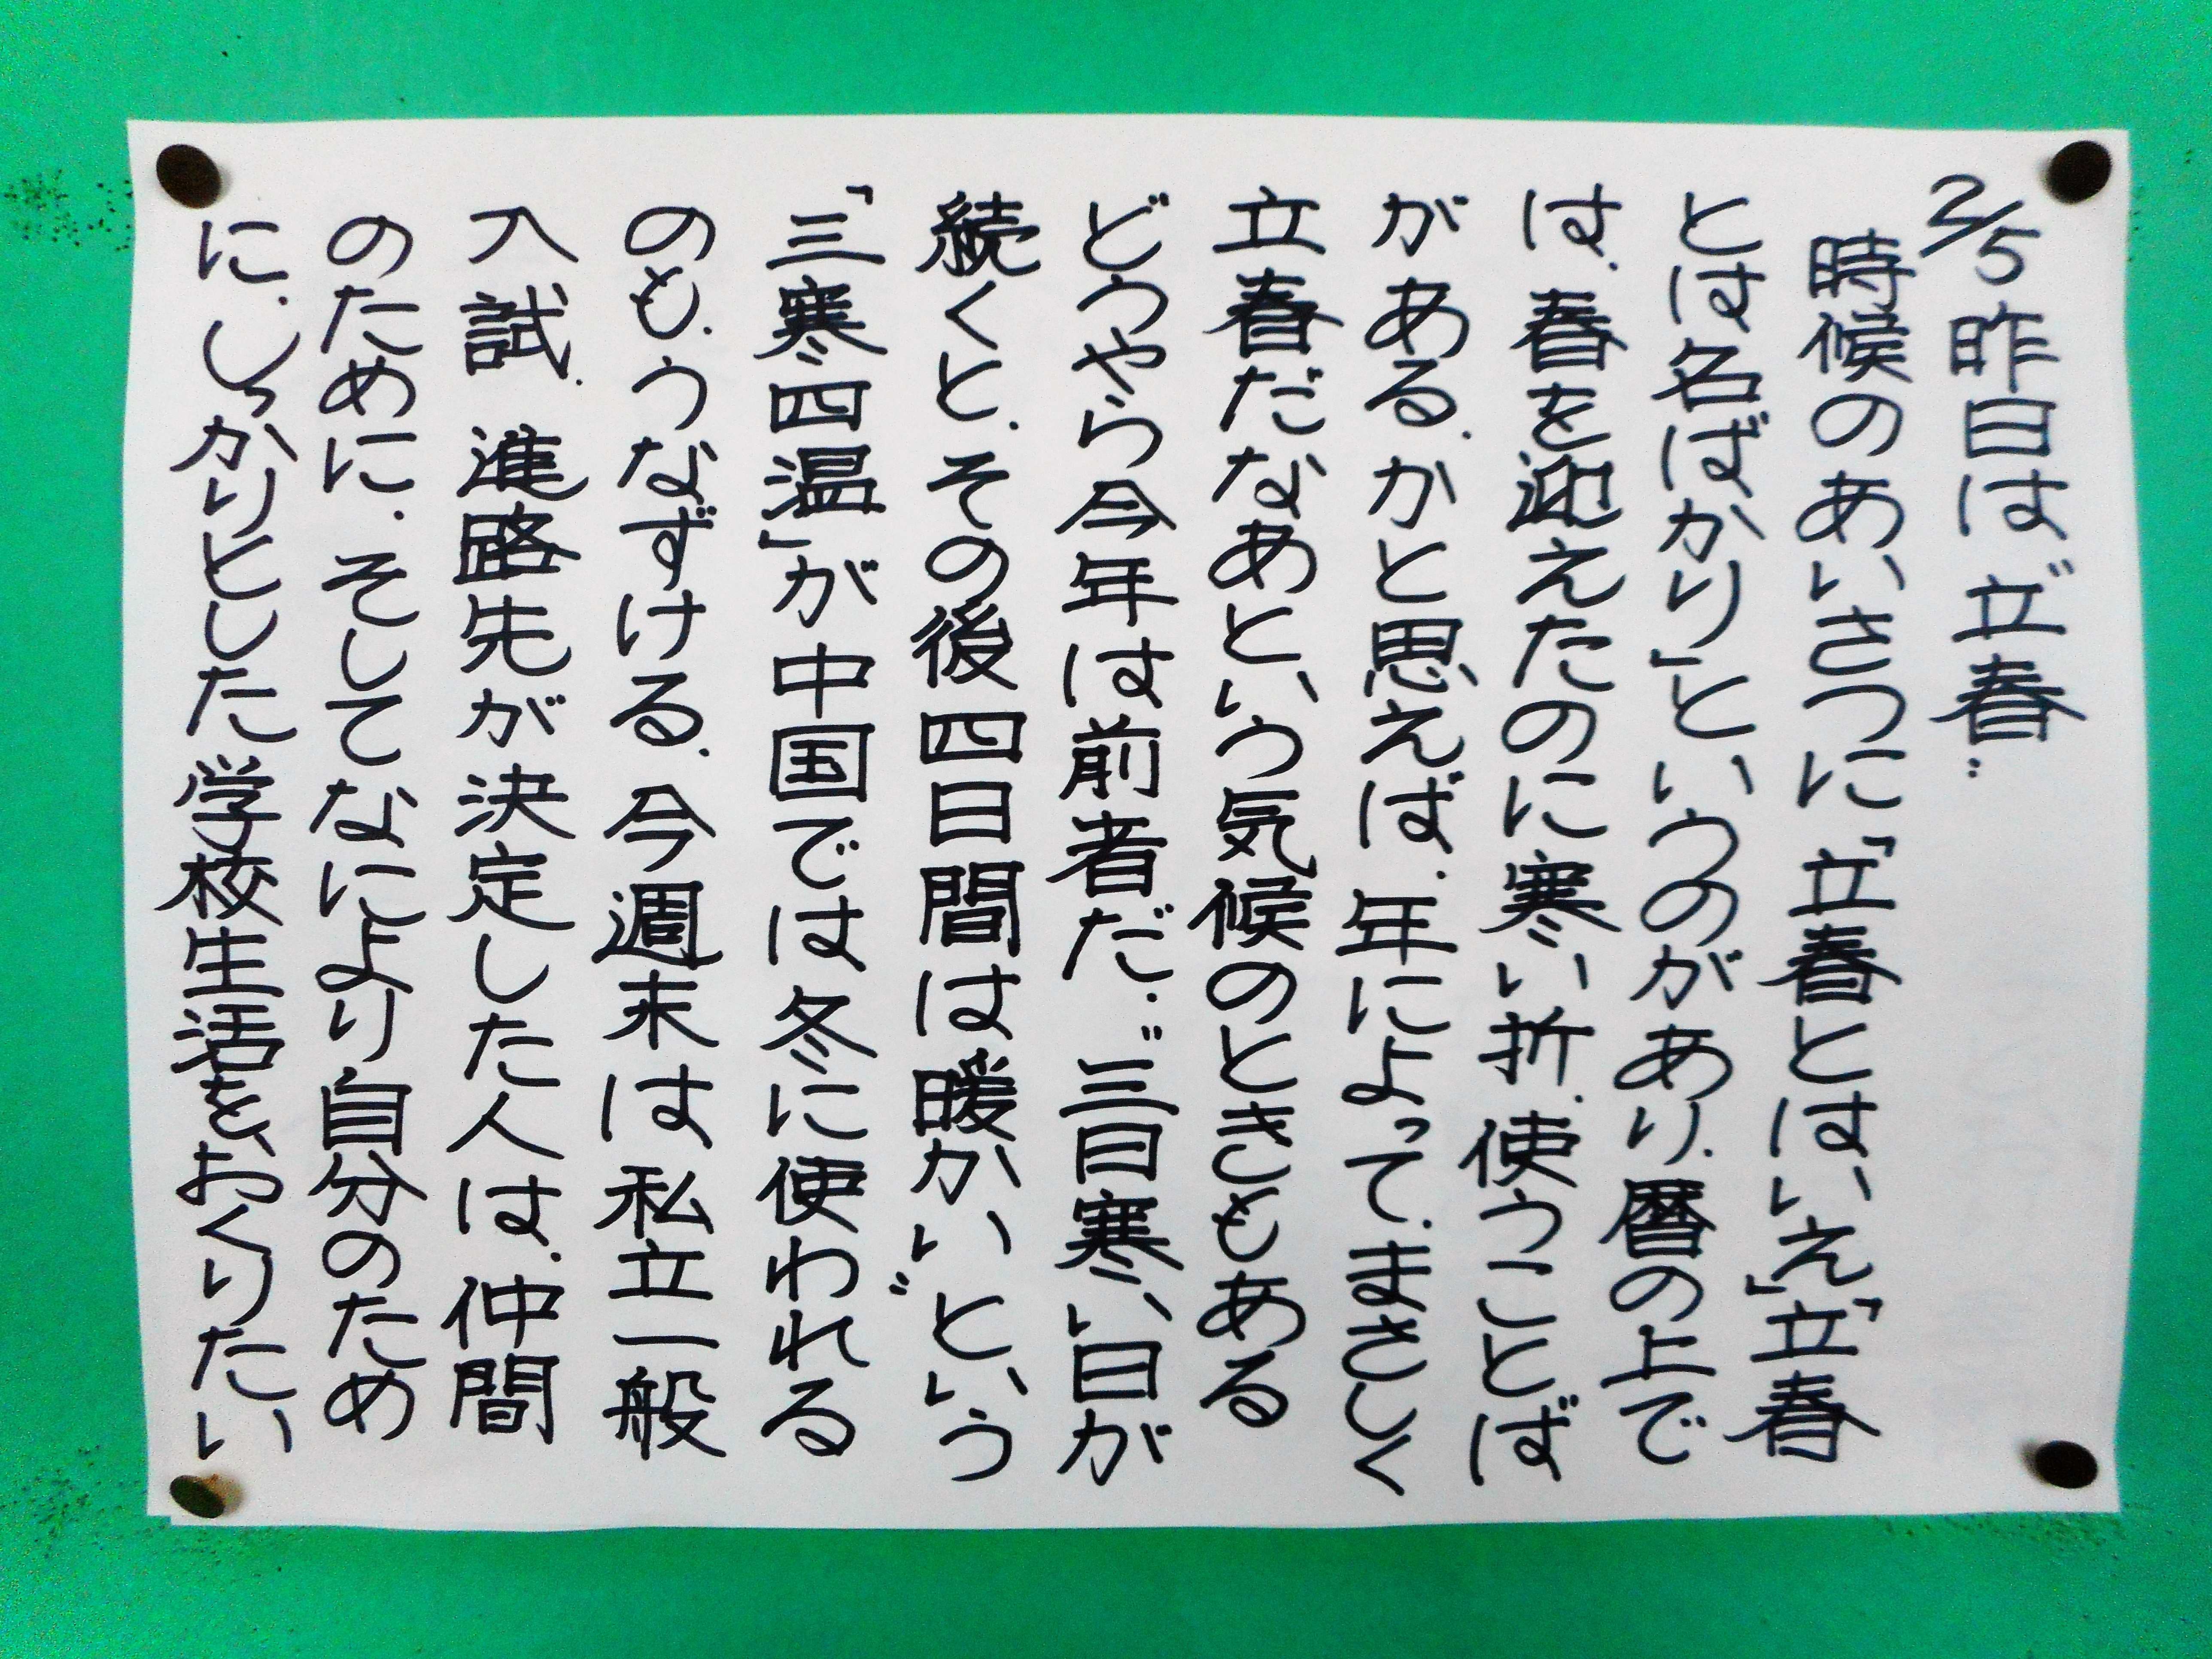 2/5 昨日は〝立春〟
時候のあいさつに「立春とはいえ」「立春
とは名ばかり」というのがあり、暦の上で
は、春を迎えたのに寒い折、使うことば
がある、かと思えば、年によって、まさしく
立春だなあという気候のときもある
どうやら今年は前者だ、〝三日寒い日が
続くと、その後四日間は暖かい〟という
「三寒四温」が中国では冬に使われる
のも、うなずける、今週末は私立一般
入試、進路先が決定した人は、仲間
のために、そしてなにより自分のため
に、しっかりとした学校生活を、おくりたい